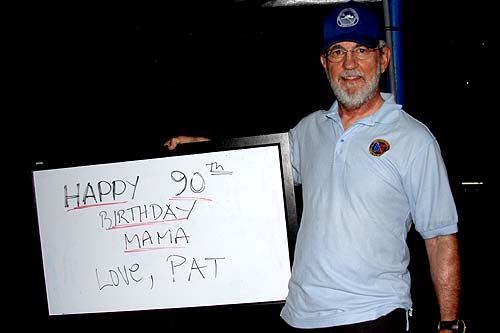 HAPPY 90th
BIRTHDAY
MAMA
LOVE, PAT